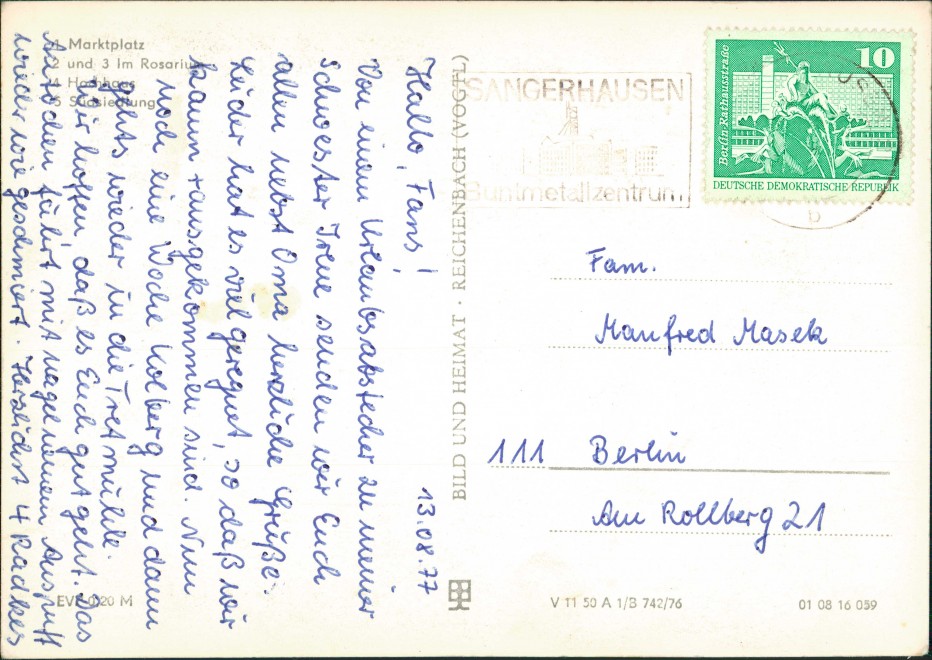 1 Marktplatz
2 und 3 Im Rosarium
4 Hochhaus
5 Südsiedlung
13.08.77
Hallo, Fans!
Von einem Urlaubsabstecher zu meiner
Schwester Irene senden wir Euch
allen nebst Oma herzliche Grüße.
Leider hat es viel geregnet, so daß wir
kaum rausgekommen sind. Nun
noch eine Woche Kolberg und dann
gehts wieder in die Tretmühle.
Wir hoffen, daß es Euch gut geht. Das
Auto fährt mit nagelneuem Auspuff
wieder wie geschmiert. Herzlichst 4 Radkes
EVP 0,20 M
BILD UND HEIMAT · REICHENBACH (VOGTL)
SANGERHAUSEN
Buntmetallzentrum
b
Berlin-Rathausstraße
10
DEUTSCHE DEMOKRATISCHE REPUBLIK
Fam.
Manfred Masek
111 Berlin
Am Rollberg 21
V 11 50 A 1/B 742/76
01 08 16 059